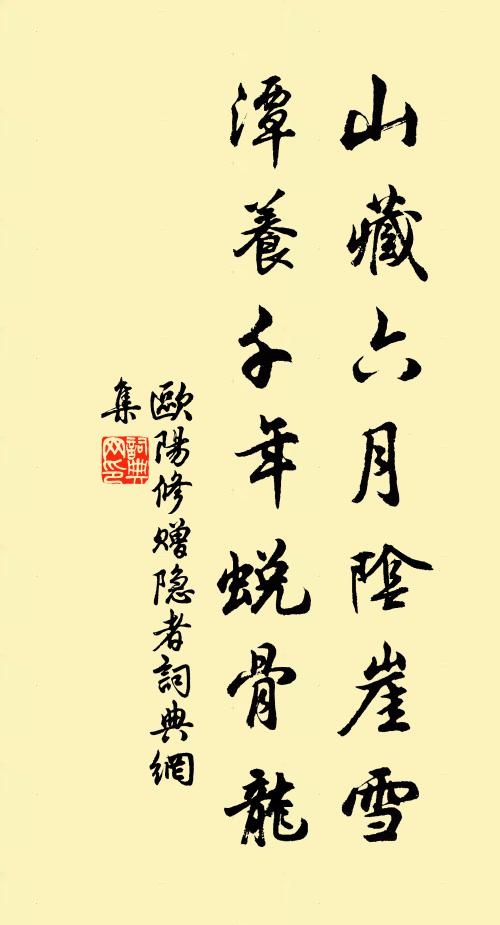 山藏六月陰崖雪
潭養千年蛻骨龍
歐陽修赠隐者詞典網
集
詞典网印